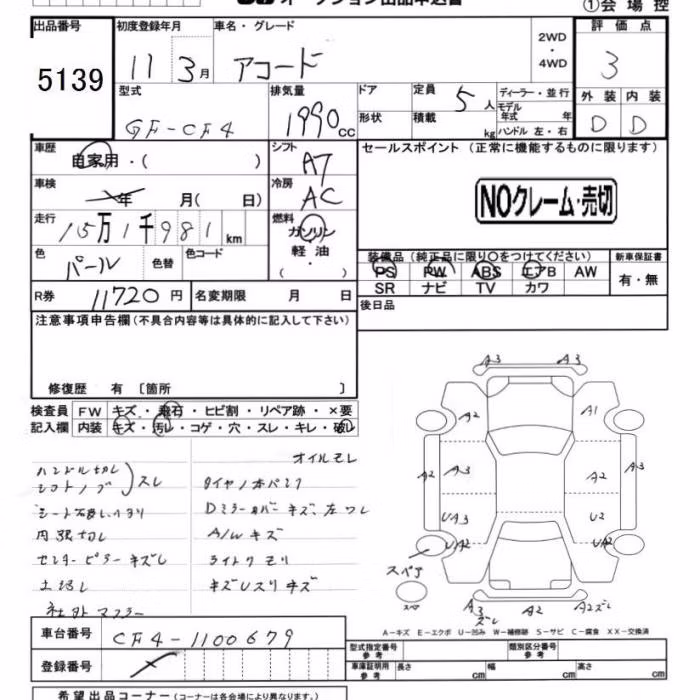 ①会場控
出品番号 初度登録年月 車名・グレード 評価点
5139 11 3月 アコード 2WD・4WD 3
型式 排気量 ドア 定員 5人 ディーラー・並行 外装 内装
GF-CF4 1990cc 形状 積載 kg モデル年式 年 D D
ハンドル 左・右
車歴 自家用・( ) シフト A7 セールスポイント (正常に機能するものに限ります)
車検 年 月( 日) 冷房 AC NOクレーム・売切
走行 15万1千981km 燃料 ガソリン
色 パール 色替 色コード 軽油 ( ・ ) 装備品 (純正品に限り○をつけてください) 新車保証書
PS PW ABS エアB AW 有・無
R券 11720円 名変期限 月 日 SR ナビ TV カワ
注意事項申告欄(不具合内容等は具体的に記入して下さい) 後日品
修復歴 有 〔箇所 〕
検査員 FW キズ・飛石・ヒビ割・リペア跡・×要
記入欄 内装 キズ・汚レ・コゲ・穴・スレ・キレ・破レ
A3 A3
A2 A1
A2 A3 A2 A3
UA3 U2
UA2 UA2
スペア
スペア
A3 ズレ A2 A2ズレ
オイルモレ
ハンドル切レ
シフトノブ スレ タイヤ1本パンク
Dミラーカバーキズ、左ワレ
A/W キズ
センターピラーキズレ ライトクモリ
社外マフラー
A-キズ E-エクボ U-凹み W-補修跡 S-サビ C-腐食 XX-交換済
車台番号 CF4-1100679
型式指定番号 参考 類別区分番号 参考
登録番号 車庫証明用 参考 長さ cm 幅 cm 高さ cm
希望出品コーナー (コーナーは各会場により異なります。)